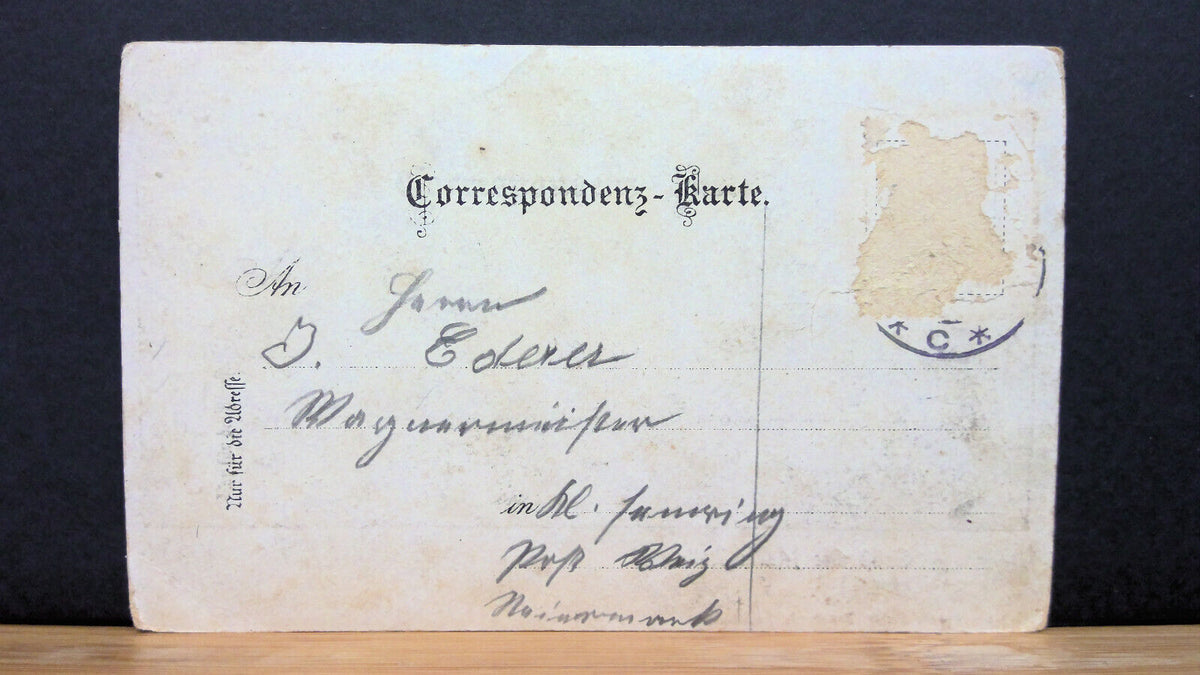 Correspondenz-Karte.
An Herrn
J. Ederer
Wagnermeister
in Kl. Semering
Post Weiz
Steiermark
Nur für die Adresse.
* C *